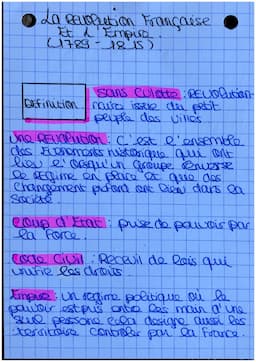 La Révolution Française
Et l'Empire
(1789-1815)
Définition
Sans Culotte : Révolution-
naire issue du petit
peuple des villes
Une Révolution : C'est l'ensemble
des Évenements historique qui ont
lieu l'orsqu'un groupe renverse
le régime en place et que des
changement profond ont lieu dans la
société.
Coup d'État : prise de pouvoir par
la force.
Code Civil : Recueil de lois qui
unifie les droits.
Empire : un régime politique où le
pouvoir est pris entre les main d'une
seul personne cela désigne aussi les
territoire contrôler par la France.